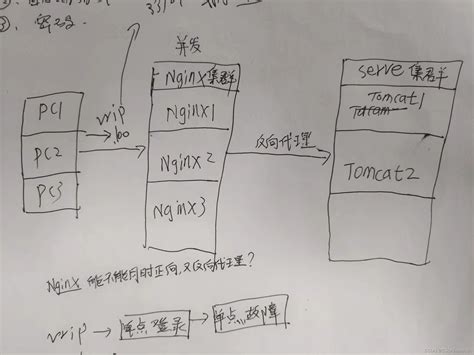 并发
Nginx集群
serve 集群
PC1
PC2
PC3
vrip
Nginx1
Nginx2
Nginx3
反向代理
Tomcat1
Tomcat2
Nginx 能不能同时正向,又反向代理?
vrip
单点登录
单点故障